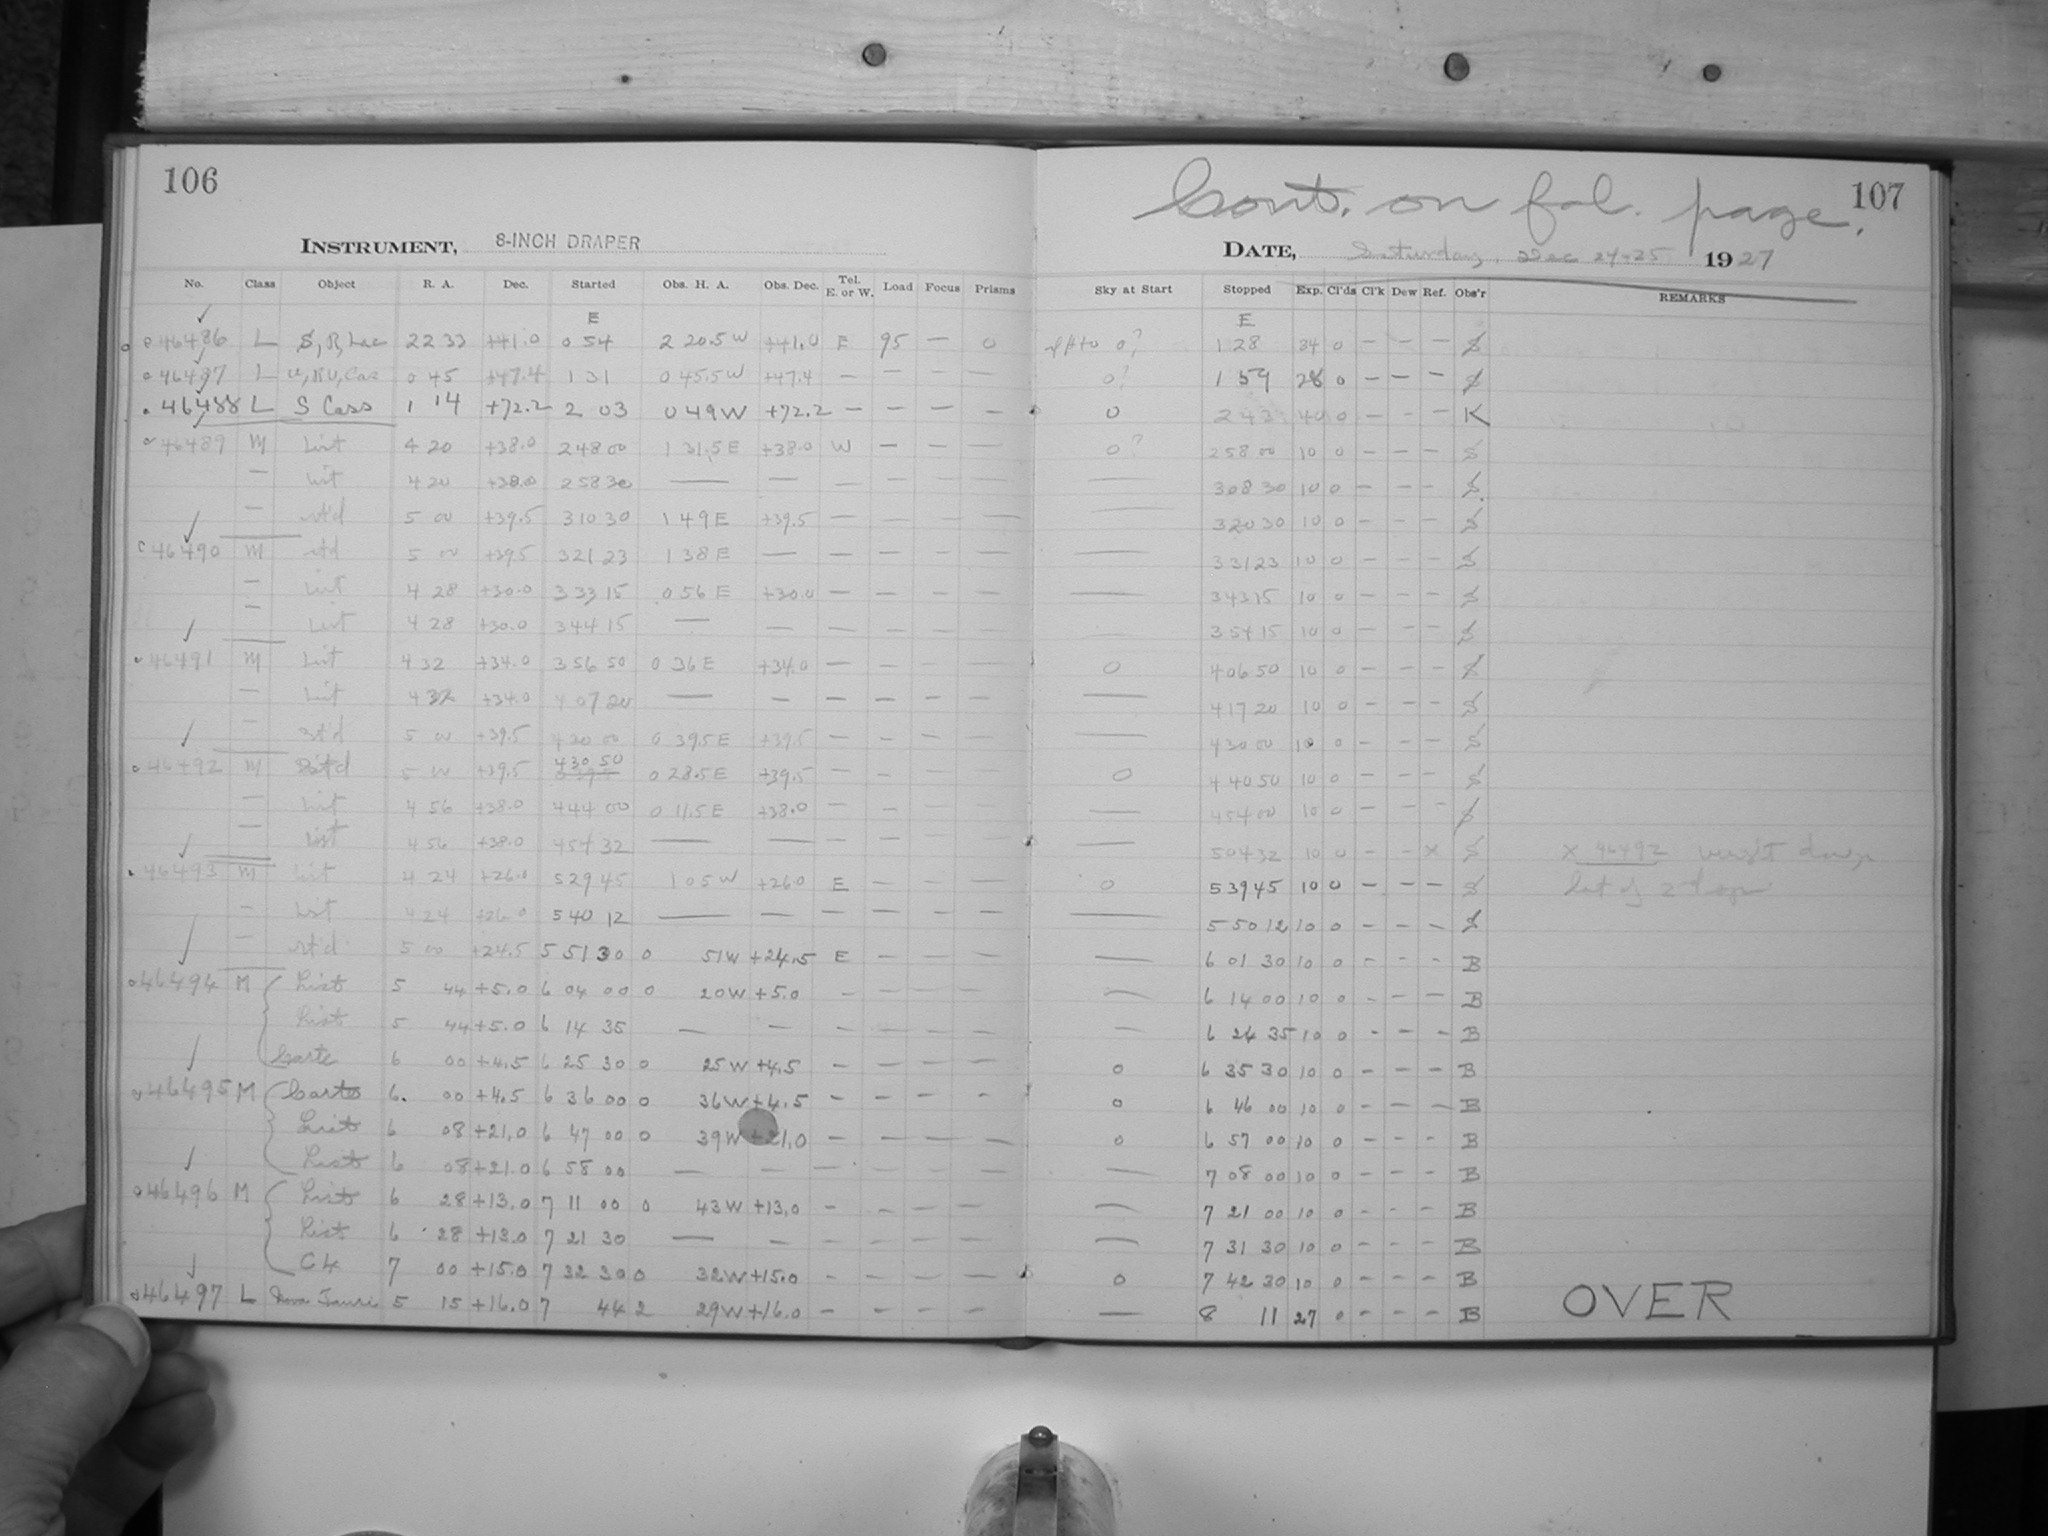 106
Cont. on fol. page.
107
INSTRUMENT, 8-INCH DRAPER
DATE, Saturday, Dec 24-25 1927
No. Class Object R. A. Dec. Started Obs. H. A. Obs. Dec. Tel. E. or W. Load Focus Prisms Sky at Start Stopped Exp. Cl'ds Cl'k Dew Ref. Obs'r REMARKS
E E
46486 L S, R, Lac 22 33 +41.0 0 54 2 20.5 W +41.0 E 95 — 0 0? 1 28 34 0 — — — S
46487 L U, RV, Cas 0 45 +47.4 1 31 0 45.5 W +47.4 — — — — 0? 1 59 28 0 — — — S
46488 L S Cass 1 14 +72.2 2 03 0 49 W +72.2 — — — — 0 2 43 40 0 — — — K
46489 M List 4 20 +38.0 2 48 00 1 31.5 E +38.0 W — — — 0? 2 58 00 10 0 — — — S
— List 4 20 +38.0 2 58 30 — — — — — — — 3 08 30 10 0 — — — S
— st'd 5 00 +39.5 3 10 30 1 49 E +39.5 — — — — — 3 20 30 10 0 — — — S
46490 M st'd 5 00 +39.5 3 21 23 1 38 E — — — — — — 3 31 23 10 0 — — — S
— List 4 28 +30.0 3 33 15 0 56 E +30.0 — — — — — 3 43 15 10 0 — — — S
— List 4 28 +30.0 3 44 15 — — — — — — — 3 54 15 10 0 — — — S
46491 M List 4 32 +34.0 3 56 50 0 36 E +34.0 — — — — 0 4 06 50 10 0 — — — S
— List 4 32 +34.0 4 07 20 — — — — — — — 4 17 20 10 0 — — — S
— st'd 5 00 +39.5 4 20 00 0 39.5 E +39.5 — — — — — 4 30 00 10 0 — — — S
46492 M st'd 5 00 +39.5 4 30 50 0 28.5 E +39.5 — — — — 0 4 40 50 10 0 — — — S
— List 4 56 +38.0 4 44 00 0 11.5 E +38.0 — — — — — 4 54 00 10 0 — — — S
— List 4 56 +38.0 4 54 32 — — — — — — — 5 04 32 10 0 — — X S X 46492
46493 M List 4 24 +26.0 5 29 45 1 05 W +26.0 E — — — 0 5 39 45 10 0 — — — S
— List 4 24 +26.0 5 40 12 — — — — — — — 5 50 12 10 0 — — — S
— st'd 5 00 +24.5 5 51 30 0 51 W +24.5 E — — — — 6 01 30 10 0 — — — B
46494 M List 5 44 +5.0 6 04 00 0 20 W +5.0 — — — — — 6 14 00 10 0 — — — B
List 5 44 +5.0 6 14 35 — — — — — — — 6 24 35 10 0 — — — B
6 00 +4.5 6 25 30 0 25 W +4.5 — — — — 0 6 35 30 10 0 — — — B
46495 M 6. 00 +4.5 6 36 00 0 36 W +4.5 — — — — 0 6 46 00 10 0 — — — B
List 6 08 +21.0 6 47 00 0 39 W +21.0 — — — — 0 6 57 00 10 0 — — — B
List 6 08 +21.0 6 58 00 — — — — — — — 7 08 00 10 0 — — — B
46496 M List 6 28 +13.0 7 11 00 0 43 W +13.0 — — — — — 7 21 00 10 0 — — — B
List 6 28 +13.0 7 21 30 — — — — — — — 7 31 30 10 0 — — — B
C4 7 00 +15.0 7 32 30 0 32 W +15.0 — — — — 0 7 42 30 10 0 — — — B
46497 L Nova Tauri 5 15 +16.0 7 44 2 29 W +16.0 — — — — — 8 11 27 0 — — — B OVER